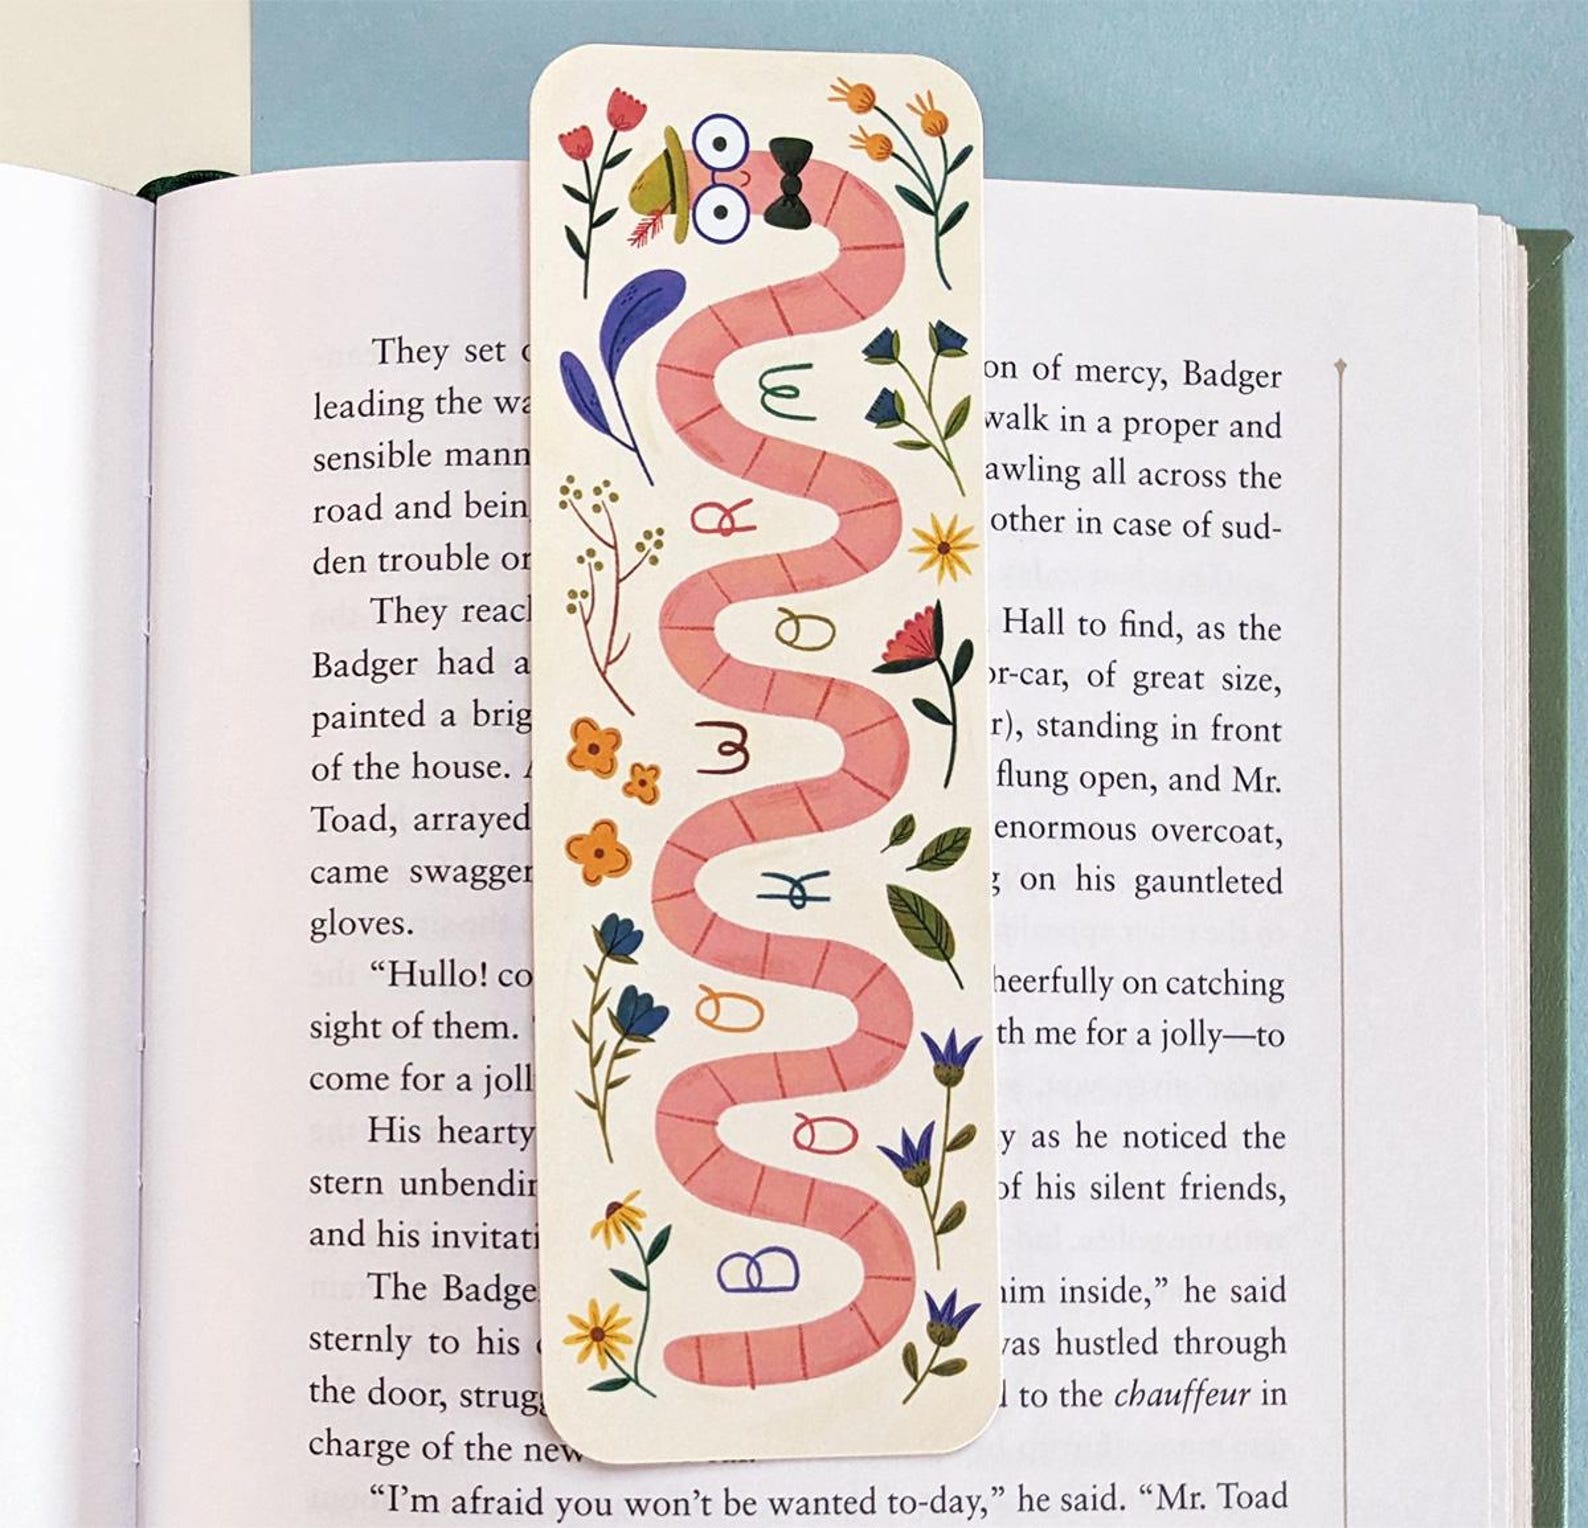 BOOKWORM
They set on of mercy, Badger
leading the walk in a proper and
sensible mann awling all across the
road and bein other in case of sud-
den trouble or
They reach Hall to find, as the
Badger had a or-car, of great size,
painted a brig r), standing in front
of the house. flung open, and Mr.
Toad, arrayed enormous overcoat,
came swagger g on his gauntleted
gloves.
“Hullo! co heerfully on catching
sight of them. th me for a jolly—to
come for a joll
His hearty y as he noticed the
stern unbendin of his silent friends,
and his invitati
The Badge him inside,” he said
sternly to his was hustled through
the door, strugg to the chauffeur in
charge of the new
“I’m afraid you won’t be wanted to-day,” he said. “Mr. Toad